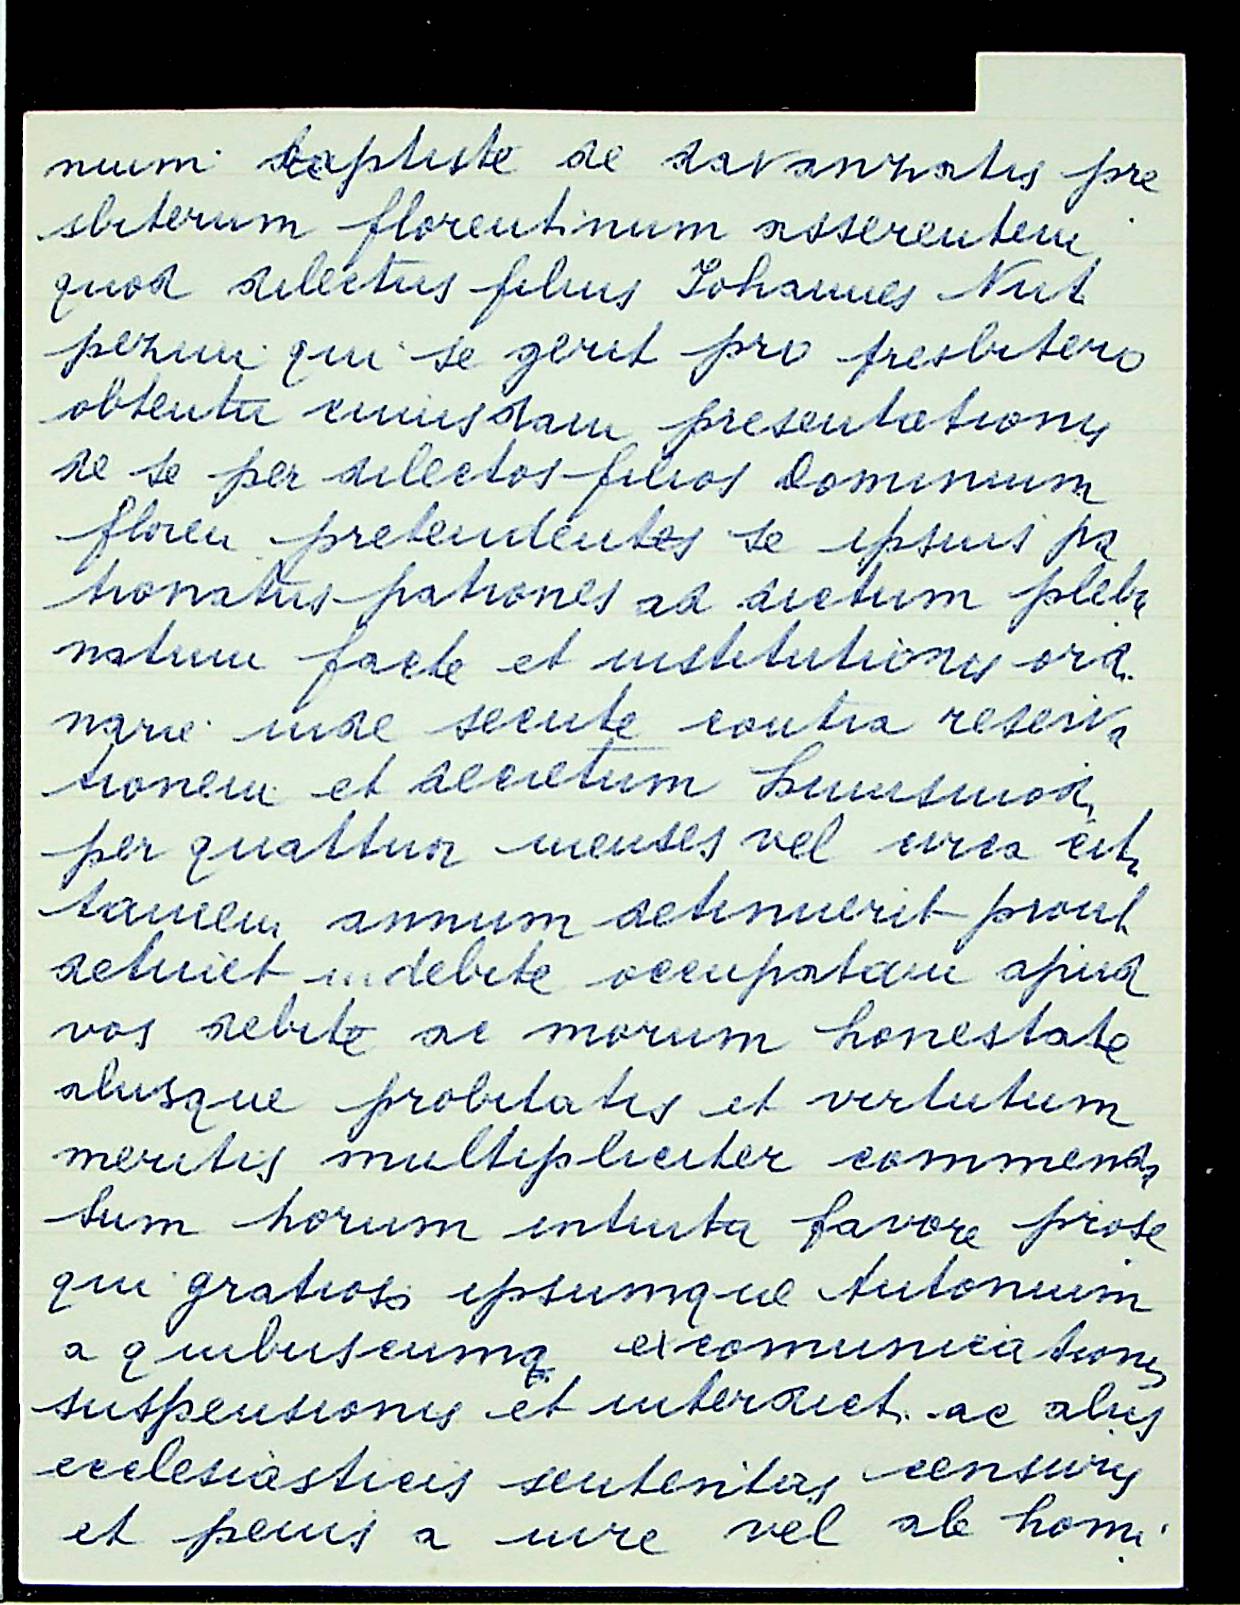 nium baptiste de davanzatis pre
sbiterum florentinum asserentem
quod dilectus filius Johannes Nut
pezini qui se gerit pro presbitero
obtentu cuiusdam presentationis
de se per dilectos filios Dominium
floren pretendentes se ipsius pa
tronatus patrones ad dictum pleba
natum facte et institutionis ordi
narie inde secute contra reserva
tionem et decretum huiusmodi
per quattuor menses vel circa cit.
tamen annum detinuerit prout
detinet indebite occupatam apud
vos debite ac morum honestate
aliisque probitatis et virtutum
meritis multipliciter commenda
tum horum intuitu favore prose
qui gratioso ipsumque Antonium
a quibuscumq excomunicationis
suspensionis et interdict. ac aliis
ecclesiasticis sententiis censuris
et penis a iure vel ab homi